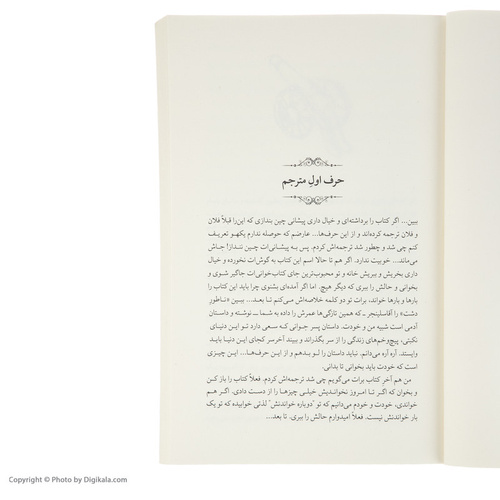 حرف اولِ مترجم
ببین... اگر کتاب را برداشته‌ای و خیال داری پیشانی چین بندازی که این‌را قبلاً فلان
و فلان ترجمه کرده‌اند و از این حرف‌ها... عارضم که حوصله ندارم یکهو تعریف
کنم چی شد و چطور شد ترجمه‌اش کردم. پس به پیشانی‌ات چین ننداز! جاش
می‌ماند... خوبیت ندارد. اگر هم تا حالا اسم این کتاب به گوش‌ات نخورده و خیال
داری بخریش و ببریش خانه و تو محبوب‌ترین جای کتاب‌خوانی‌ات جاگیر شوی و
بخوانی و حالش را ببری که دیگر هیچ. اما اگر آمده‌ای بشنوی چرا باید این کتاب را
بارها و بارها خواند، برات تو دو کلمه خلاصه‌اش می‌کنم تا بعد... ببین «ناطورِ
دشت» را آقا سلینجر ـ که همین تازگی‌ها عمرش را داده به شما ـ نوشته و داستان
آدمی است شبیه من و خودت. داستان پسر جوانی که سعی دارد تو این دنیای
نکبتی، پیچ‌وخم‌های زندگی را از سر بگذراند و ببیند آخرسر کجای این دنیا باید
وایستد. آره آره می‌دانم. نباید داستان را لو بدهم و از این حرف‌ها... این چیزی
است که خودت باید بخوانی تا بدانی.
من هم آخر کتاب برات می‌گویم چی شد ترجمه‌اش کردم. فعلاً کتاب را باز کن
و بخوان که اگر تا امروز نخواندیش خیلی چیزها را از دست دادی. اگر هم
خواندی، خودت و خودم می‌دانیم که تو "دوباره خواندنش" لذتی خوابیده که تو یک
بار خواندنش نیست. فعلاً امیدوارم حالش را ببری. تا بعد...
Copyright © Photo by Digikala.com